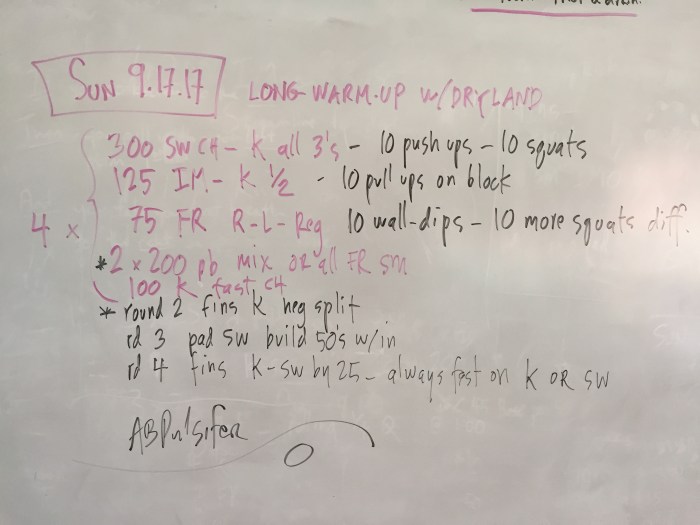 SUN 9.17.17 LONG WARM-UP W/DRYLAND
4 x
300 SW CH - K all 3's - 10 push ups - 10 squats
125 IM - K 1/2 - 10 pull ups on block
75 FR R-L-Reg 10 wall-dips - 10 more squats diff.
*2 x 200 pb mix OR all FR sm
100 K fast CH
* round 2 fins K neg split
rd 3 pad sw build 50's w/in
rd 4 fins K-SW by 25 - always fast on K OR SW
ABPulsifer